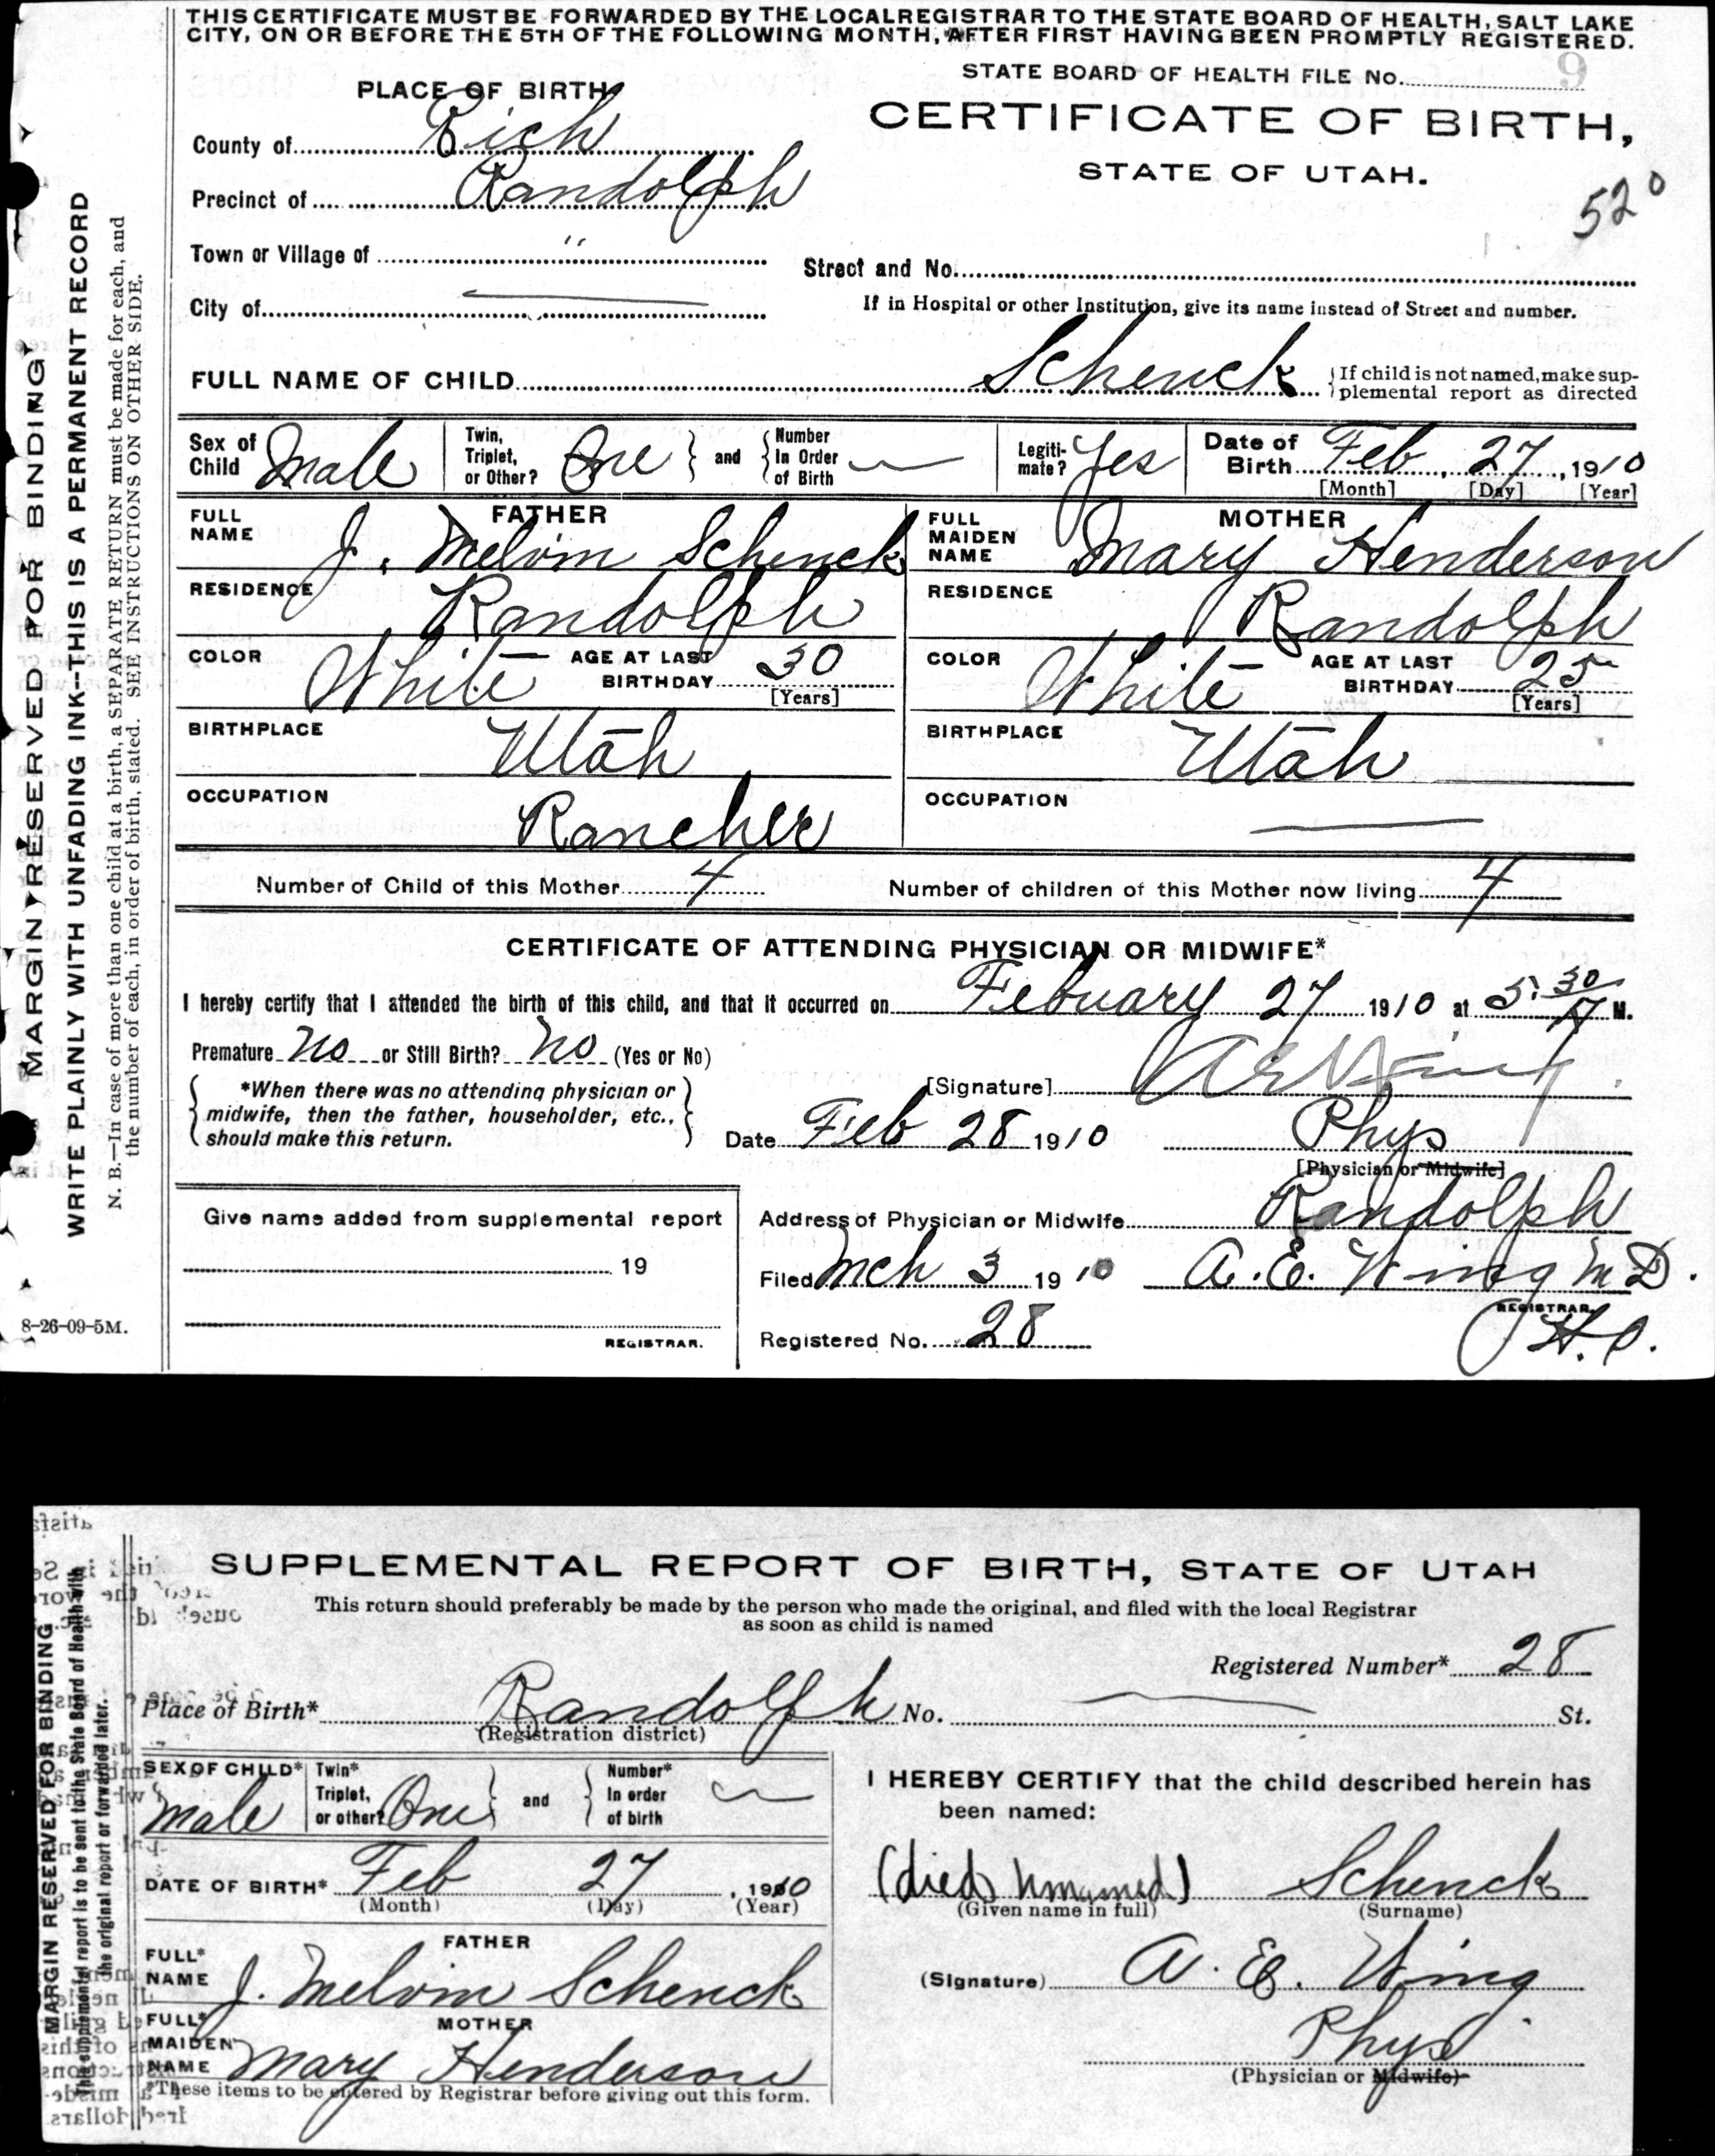 THIS CERTIFICATE MUST BE FORWARDED BY THE LOCAL REGISTRAR TO THE STATE BOARD OF HEALTH, SALT LAKE
CITY, ON OR BEFORE THE 5TH OF THE FOLLOWING MONTH, AFTER FIRST HAVING BEEN PROMPTLY REGISTERED.
STATE BOARD OF HEALTH FILE No. 9
PLACE OF BIRTH
CERTIFICATE OF BIRTH,
STATE OF UTAH.
520
County of Rich
Precinct of Randolph
Town or Village of "
Street and No.
City of
If in Hospital or other Institution, give its name instead of Street and number.
FULL NAME OF CHILD Schenck {If child is not named, make sup-
plemental report as directed
Sex of Child Male
Twin, Triplet, or Other? One } and { Number In Order of Birth
Legiti-mate? Yes
Date of Birth Feb, 27, 1910
[Month] [Day] [Year]
FATHER
FULL NAME J. Melvin Schenck
MOTHER
FULL MAIDEN NAME Mary Henderson
RESIDENCE Randolph
RESIDENCE Randolph
COLOR White AGE AT LAST BIRTHDAY 30
[Years]
COLOR White AGE AT LAST BIRTHDAY 25
[Years]
BIRTHPLACE Utah
BIRTHPLACE Utah
OCCUPATION Rancher
OCCUPATION
Number of Child of this Mother 4 Number of children of this Mother now living 4
CERTIFICATE OF ATTENDING PHYSICIAN OR MIDWIFE*
I hereby certify that I attended the birth of this child, and that it occurred on Febuary 27 1910 at 5:30 A M.
Premature No or Still Birth? No (Yes or No)
{*When there was no attending physician or
midwife, then the father, householder, etc.,
should make this return.}
[Signature] A E Wing
Date Feb 28 1910 Phys
[Physician or Midwife]
Address of Physician or Midwife Randolph
Filed Mch 3 1910 A. E. Wing M D.
REGISTRAR.
Registered No. 28
Give name added from supplemental report
19
REGISTRAR.
8-26-09-5M.
MARGIN RESERVED FOR BINDING
WRITE PLAINLY WITH UNFADING INK--THIS IS A PERMANENT RECORD
N. B.—In case of more than one child at a birth, a SEPARATE RETURN must be made for each, and
the number of each, in order of birth, stated. SEE INSTRUCTIONS ON OTHER SIDE.
SUPPLEMENTAL REPORT OF BIRTH, STATE OF UTAH
This return should preferably be made by the person who made the original, and filed with the local Registrar
as soon as child is named
Registered Number* 28
Place of Birth* Randolph No. St.
(Registration district)
SEX OF CHILD* Male
Twin* Triplet, or other? One } and { Number* In order of birth
DATE OF BIRTH* Feb 27, 1910
(Month) (Day) (Year)
FATHER
FULL* NAME J. Melvin Schenck
MOTHER
FULL* MAIDEN NAME Mary Henderson
*These items to be entered by Registrar before giving out this form.
I HEREBY CERTIFY that the child described herein has
been named:
(died unnamed) Schenck
(Given name in full) (Surname)
(Signature) A. E. Wing
Phys
(Physician or Midwife)
MARGIN RESERVED FOR BINDING
This supplemental report is to be sent to the State Board of Health with
the original report or forwarded later.